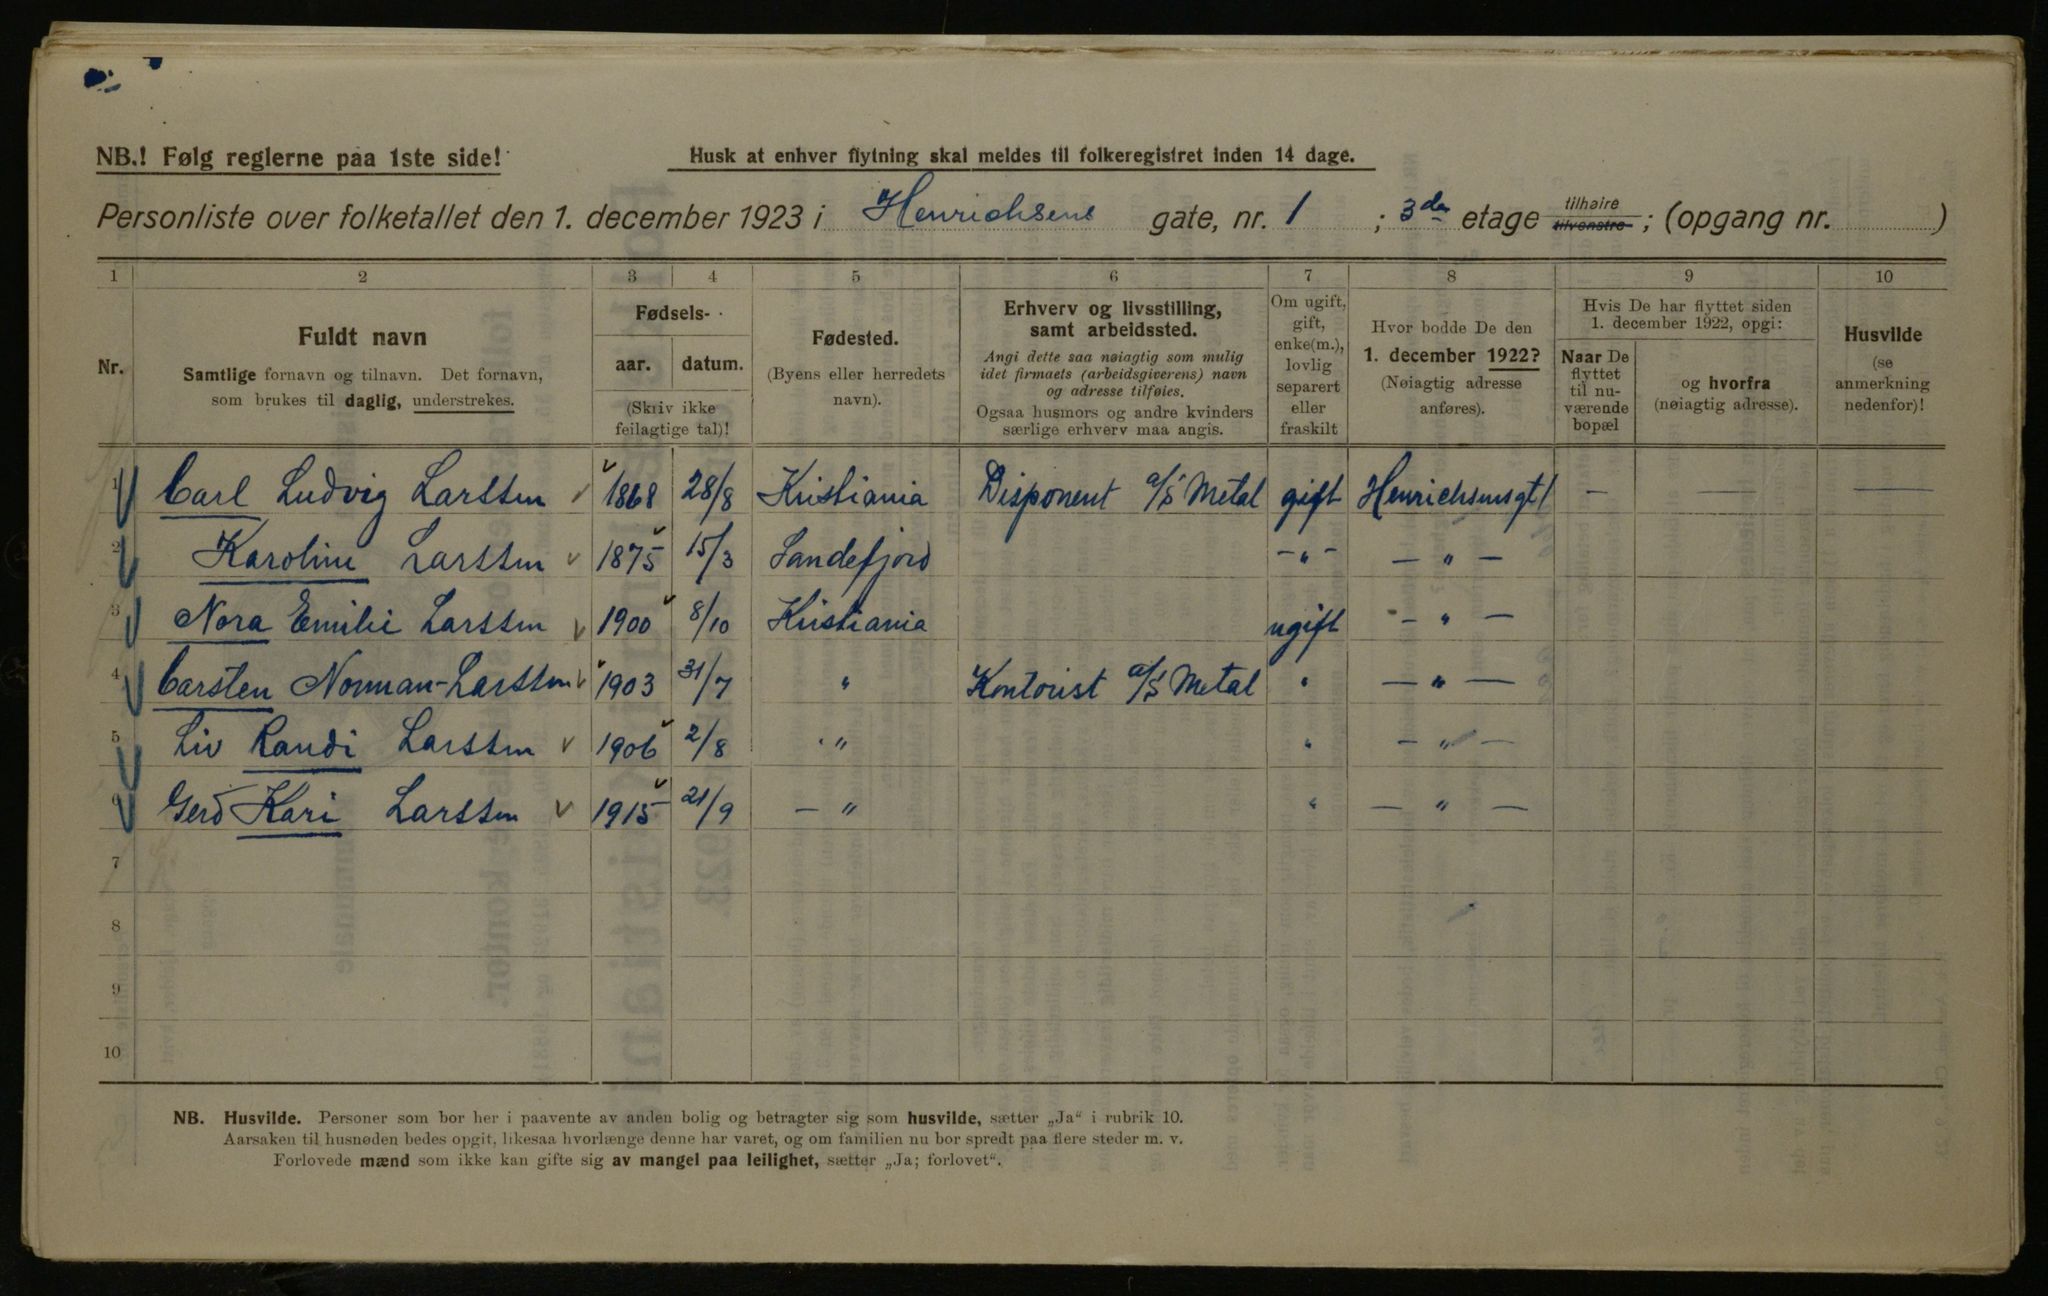 NB.! Følg reglerne paa 1ste side!
Husk at enhver flytning skal meldes til folkeregistret inden 14 dage.
Personliste over folketallet den 1. december 1923 i Henrichsens gate, nr. 1 ; 3de etage tilhøire tilvenstre ; (opgang nr. )
1 2 3 4 5 6 7 8 9 10
Nr.
Fuldt navn
Samtlige fornavn og tilnavn. Det fornavn,
som brukes til daglig, understrekes.
Fødsels-
aar. datum.
(Skriv ikke
feilagtige tal)!
Fødested.
(Byens eller herredets
navn).
Erhverv og livsstilling,
samt arbeidssted.
Angi dette saa nøiagtig som mulig
idet firmaets (arbeidsgiverens) navn
og adresse tilføies.
Ogsaa husmors og andre kvinders
særlige erhverv maa angis.
Om ugift,
gift,
enke(m.),
lovlig
separert
eller
fraskilt
Hvor bodde De den
1. december 1922?
(Nøiagtig adresse
anføres).
Hvis De har flyttet siden
1. december 1922, opgi:
Naar De
flyttet
til nu-
værende
bopæl
og hvorfra
(nøiagtig adresse).
Husvilde
(se
anmerkning
nedenfor)!
1 Carl Ludvig Larssen 1868 28/8 Kristiania Disponent a/s Metal gift Henrichsensgt 1 — — —
2 Karoline Larssen 1875 15/3 Sandefjord -„- — „ —
3 Nora Emilie Larssen 1900 8/10 Kristiania ugift — „ —
4 Carsten Norman-Larssen 1903 31/7 „ Kontorist a/s Metal „ — „ —
5 Liv Randi Larssen 1906 2/8 „ „ — „ —
6 Gerd Kari Larssen 1915 21/9 — „ „ — „ —
7
8
9
10
NB. Husvilde. Personer som bor her i paavente av anden bolig og betragter sig som husvilde, sætter „Ja“ i rubrik 10.
Aarsaken til husnøden bedes opgit, likesaa hvorlænge denne har varet, og om familien nu bor spredt paa flere steder m. v.
Forlovede mænd som ikke kan gifte sig av mangel paa leilighet, sætter „Ja; forlovet“.